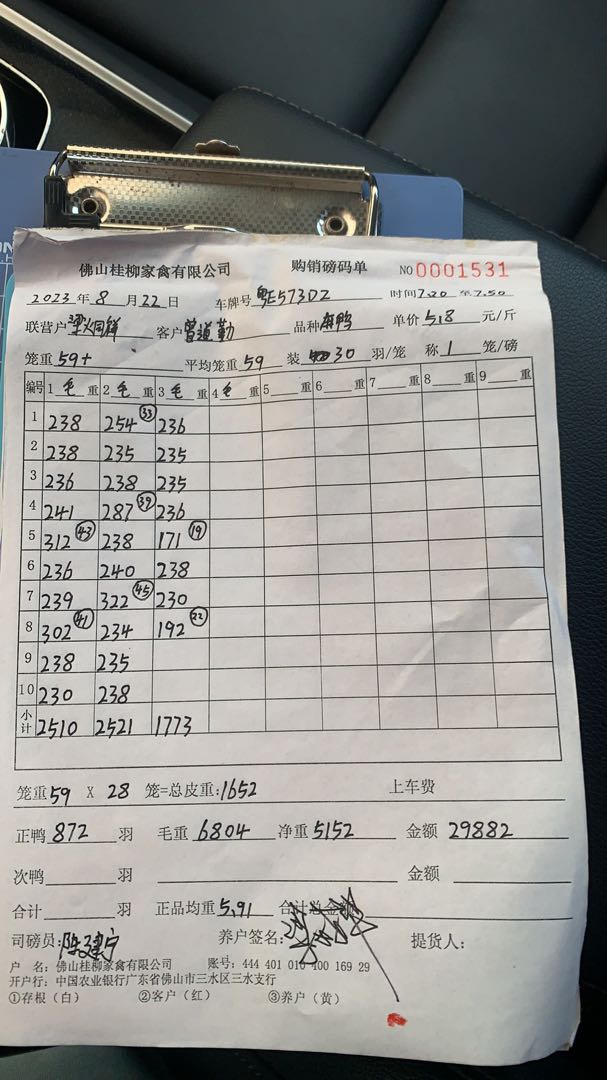 佛山桂柳家禽有限公司 购销磅码单 NO 0001531
2023年8月22日 车牌号粤E573D2 时间7.20至7.50
联营户 客户曾道勤 品种 单价5.8元/斤
笼重59+ 平均笼重59 装30羽/笼 称1笼/磅
编号 1毛重 2毛重 3毛重 4毛重 5重 6重 7重 8重 9重
1 238 254 (33) 236
2 238 235 235
3 236 238 235
4 241 287 (39) 236
5 312 (43) 238 171 (19)
6 236 240 238
7 239 322 (45) 230
8 302 (41) 234 192 (22)
9 238 235
10 230 238
小计 2510 2521 1773
笼重59X28笼=总皮重:1652 上车费
正鸭872羽 毛重6804 净重5152 金额29882
次鸭 羽 金额
合计 羽 正品均重5.91 合计总金额
司磅员: 养户签名: 提货人:
户 名:佛山桂柳家禽有限公司 账号:444 401 010 400 169 29
开户行:中国农业银行广东省佛山市三水区三水支行
①存根(白) ②客户(红) ③养户(黄)